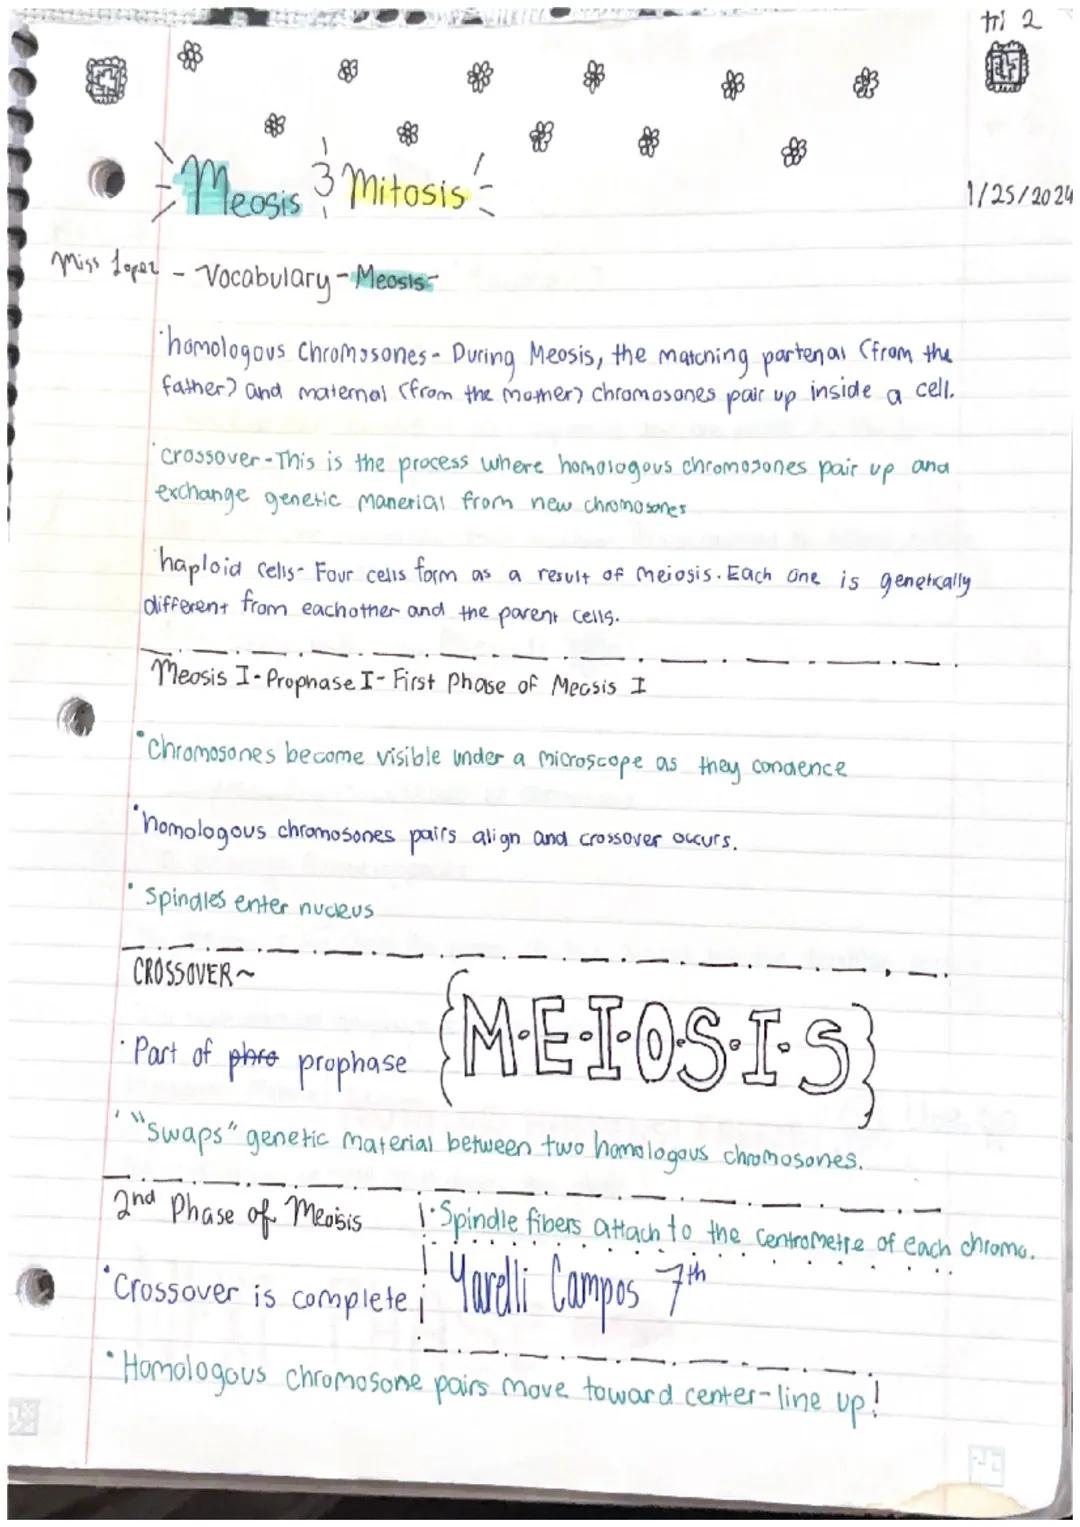 tri 2
Meosis & Mitosis
1/25/2024
Miss Lopez - Vocabulary - Meosis-
·homologous Chromosones- During Meosis, the matching partenal (from the
father) and maternal (from the mother) chromosones pair up inside a cell.
·crossover-This is the process where homologous chromosones pair up and
exchange genetic manerial from new chromosones
·haploid cells- Four cells form as a result of meiosis. Each one is genetically
different from eachother and the parent cells.
Meosis I- Prophase I- First Phase of Meosis I
·Chromosones become visible under a microscope as they condence
·homologous chromosones pairs align and crossover occurs.
·Spindles enter nucleus
CROSSOVER~
{M·E·I·O·S·I·S}
·Part of phro prophase
·"Swaps" genetic material between two homologous chromosones.
2nd Phase of Meoisis
·Spindle fibers attach to the centrometre of each chromo.
·Crossover is complete
Yarelli Campos 7th
·Homologous chromosone pairs move toward center-line up!